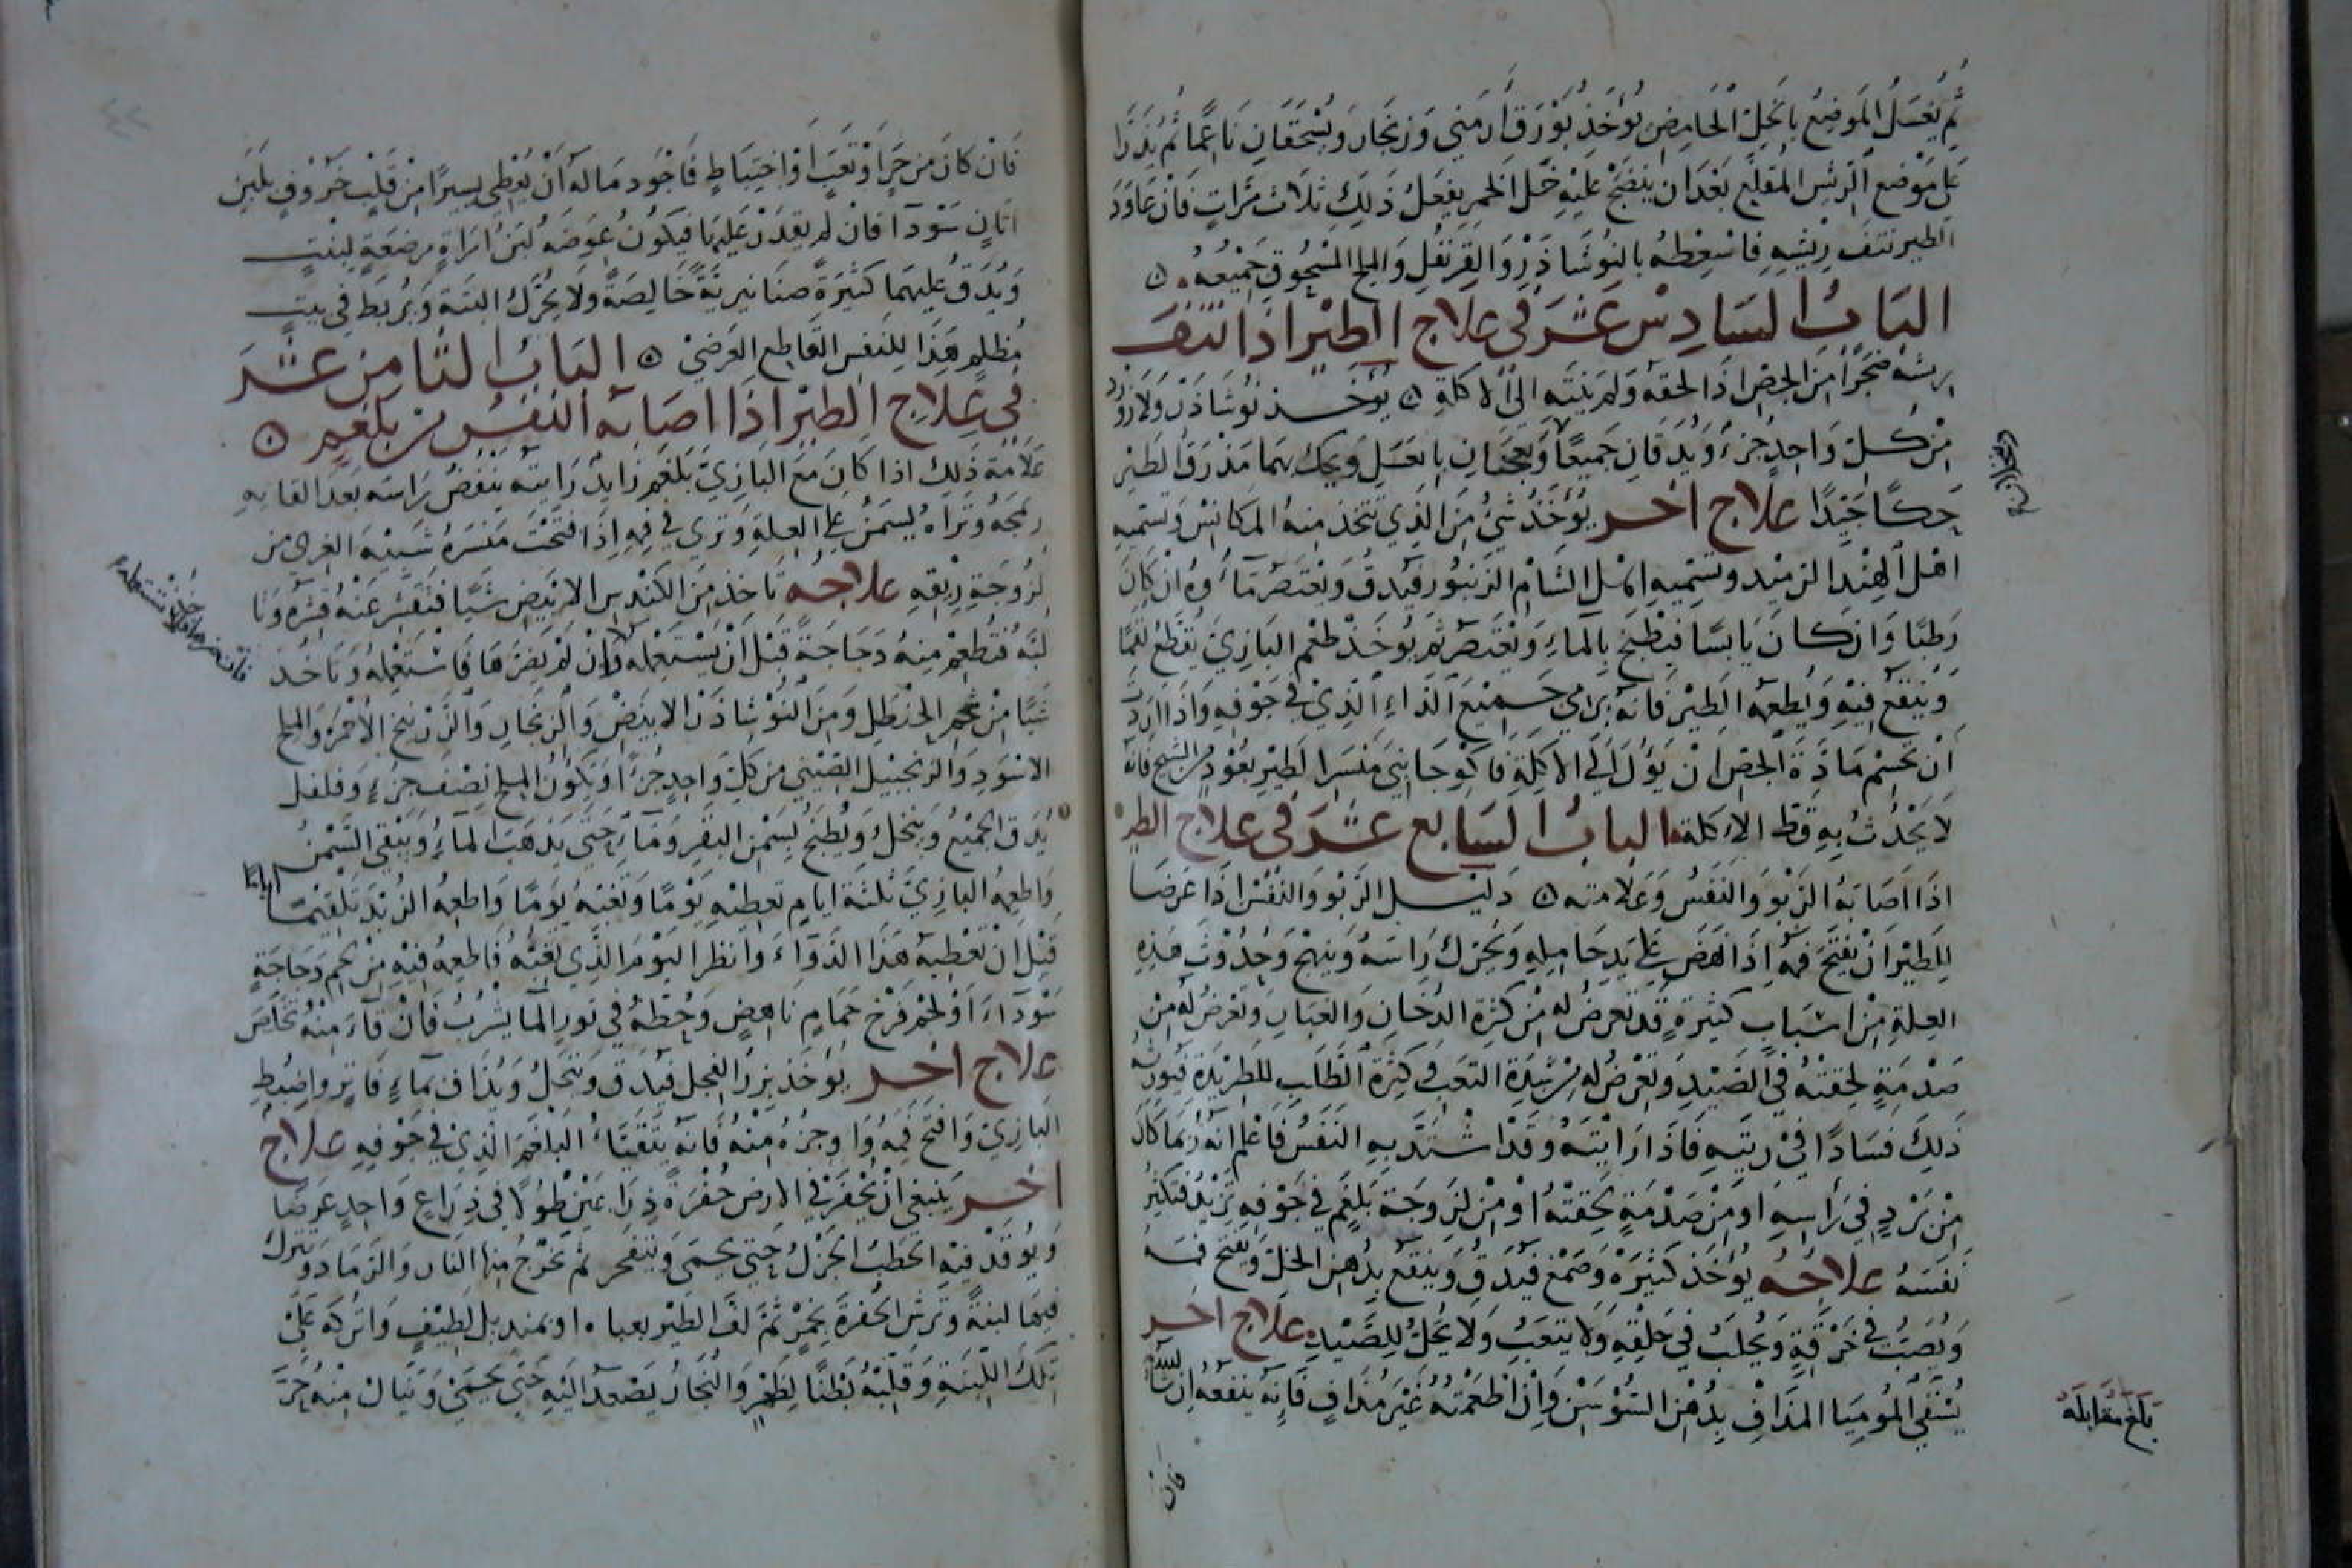 ثم يغسل الموضع بالخل الحامض يؤخذ بورق أرمني وزنجار ويسحقان ناعما ثم يذرا
على موضع الريش المقلع بعد ان ينضح عليه خل الخمر يفعل ذلك ثلاث مرات فان عاود
الطير نتف ريشه فاسعطه بالنوشاذر والقرنفل والملح المسحوق جميعه
الباب السادس عشر في علاج الطير اذا نتف
ريشه ضجرا من الجص اذا لحقه ولم ينته الى الاكلة يؤخذ نوشاذر ولازورد
من كل واحد جزء ويدقان جميعا ويعجنان بالعسل ويحك بهما مذرق الطير
حكا جيدا علاج اخر يؤخذ شيء من الذي تتخذ منه المكانس وتسميه
اهل الهند الزميد وتسميه اهل الشام الزنبور فيدق ويعتصر ماؤه ان كان
رطبا وان كان يابسا فيطبخ بالماء ويعتصر ثم يؤخذ طعم البازي يقطع لقما
وينقع فيه ويطعمه الطير فانه يرمي جميع الداء الذي في جوفه واذا اردت
أن تحسم مادة الجص ان يؤل الى الاكلة فاكو جانبي منسر الطير بعود من الشيح فانه
لا يحدث به قط الاكلة الباب السابع عشر في علاج الطير
اذا اصابه الربو والنفس وعلامته دليل الربو والنفس اذا عرضا
للطير أن يفتح فمه اذا نهض على يد حامله ويحرك راسه وينهج وحدوث هذه
العلة من اسباب كثيرة قد تعرض له من كثرة الدخان والغبار وتعرض له من
صدمة لحقته في الصيد وتعرض له من شدة التعب في كثرة الطلب للطريدة فيورثه
ذلك فسادا في ريته فاذا رايته وقد اشتد به النفس فاعلم انه ربما كان
من برد في راسه او من صدمة لحقته او من لزوجة بلغم في جوفه تزيد فتكثر
نفسه علاجه يؤخذ كثيره وصمغ فيدق وينقع بدهن الخل ويفتح فمه
ويصب في خرقة ويحلب في حلقه ولا يتعب ولا يحل للصيد علاج اخر
يسقى الموميا المذاف بدهن السوسن وإن اطعمته غير مذاف فإنه ينفعه ان
فان
بلغ مقابلة
فان كان من حر او تعب أو اختباط فأجود ماله أن يعطى يسيرا من قلب خروف بلبن
اتان سودا فان لم يقدر عليهما فيكون عوضه لبن امراة مرضعة لبنت
ويدق عليهما كثيرة صنانيرية خالصة ولا يحرك البتة ويربط في بيت
مظلم هذا للنفس القاطع العرضي الباب الثامن عشر
في علاج الطير اذا اصابه النفس من بلغم
علامة ذلك اذا كان مع البازي بلغم زايد رايته ينفض راسه بعد القايه
رمجه وتراه يسمن على العلة وترى في فمه إذا فتحت منسره شبيه الغرى من
لزوجة ريقه علاجه تاخذ من الكندس الابيض شيا فتقشر عنه قشره وتا
لبه فتطعم منه دجاجة قبل أن يستعمله لان وان لم يضرها فاستعمله وتاخذ
شيا من شحم الحنظل ومن النوشاذر الابيض والزنجار والزرنيخ الأحمر والملح
الاسود والزنجبيل الصيني من كل واحد جزءا ويكون الملح نصف جزء وفلفل
يدق الجميع وينخل ويطبخ بسمن البقر وماء حتى يذهب الماء ويبقى السمن
واطعمه البازي ثلثة ايام تعطيه يوما وتغبه يوما واطعمه الزبد تلقيما
قبل ان تعطيه هذا الدواء وانظر اليوم الذي تغبه فاطعمه فيه من لحم دجاجة
سوداء او لحم فرخ حمام ناهض وحطه في تور الما يشرب فان قاء منه تخلص
علاج اخر يؤخذ بزر الفجل فيدق وينخل ويذاف بماء فاتر واضبط
البازي وافتح فمه واوجره منه فانه يتقيا البلغم الذي في جوفه علاج
اخر ينبغي ان تحفر في الارض حفرة ذراعين طولا في ذراع واحد عرضا
ويوقد فيه الحطب الجزل حتى يحمى ويتفحر ثم تخرج منها النار والرماد ويترك
فيها لبنة وترش الحفرة بخمر ثم لف الطير بعباه او بمنديل لطيف واتركه على
تلك اللبنة وقلبه بطنا لظهر والبخار يصعد اليه حتى يحمى وتبان منه حر